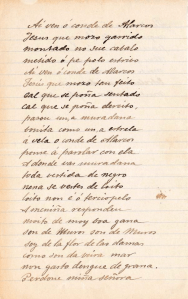 Ai ven o conde de Alarcos
Jesus que mozo garrido
montado no sue cabalo
metido o pe polo estribo
Ai ven o conde de Alarcos
que mozo tan feito
cal que se poña sentado
cal que se poña dereito,
pasou un a muradana
bonita como un a estrela
a vela o conde de Alarcos
ponse a parolar con ela
A donde vas muradana
toda vestida de negro
nena se vistes de loito
loito non é o terciopelo
A meniña responden
moito de moy boa gana
son de Muros son de Muros
soy de la flor de las damas
como son da vira mar
non gasto dengue de grana.
Perdone miña señora